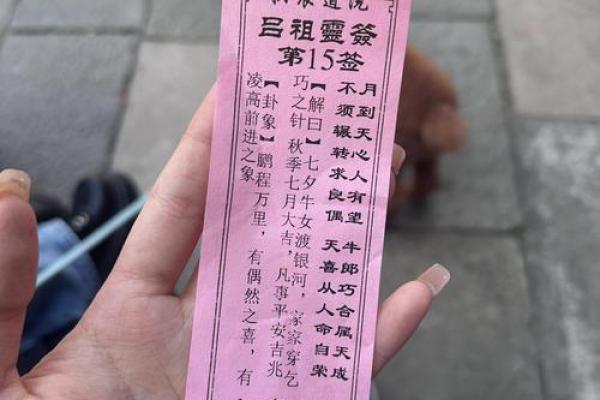 道院
吕祖靈簽
第15签
月到天心人有望 牛郎巧合属天成
不须辗转求良偶 天喜从人命自荣
【解曰】七夕牛女渡银河，家家穿乞
巧之针 秋季七月大吉，凡事平安吉兆
【卦象】鹏程万里，有偶然之喜，有
凌高前进之象